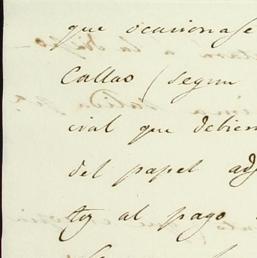 que ocasionase
Callao (segun
cial que debien
del papel adj
ty al pago